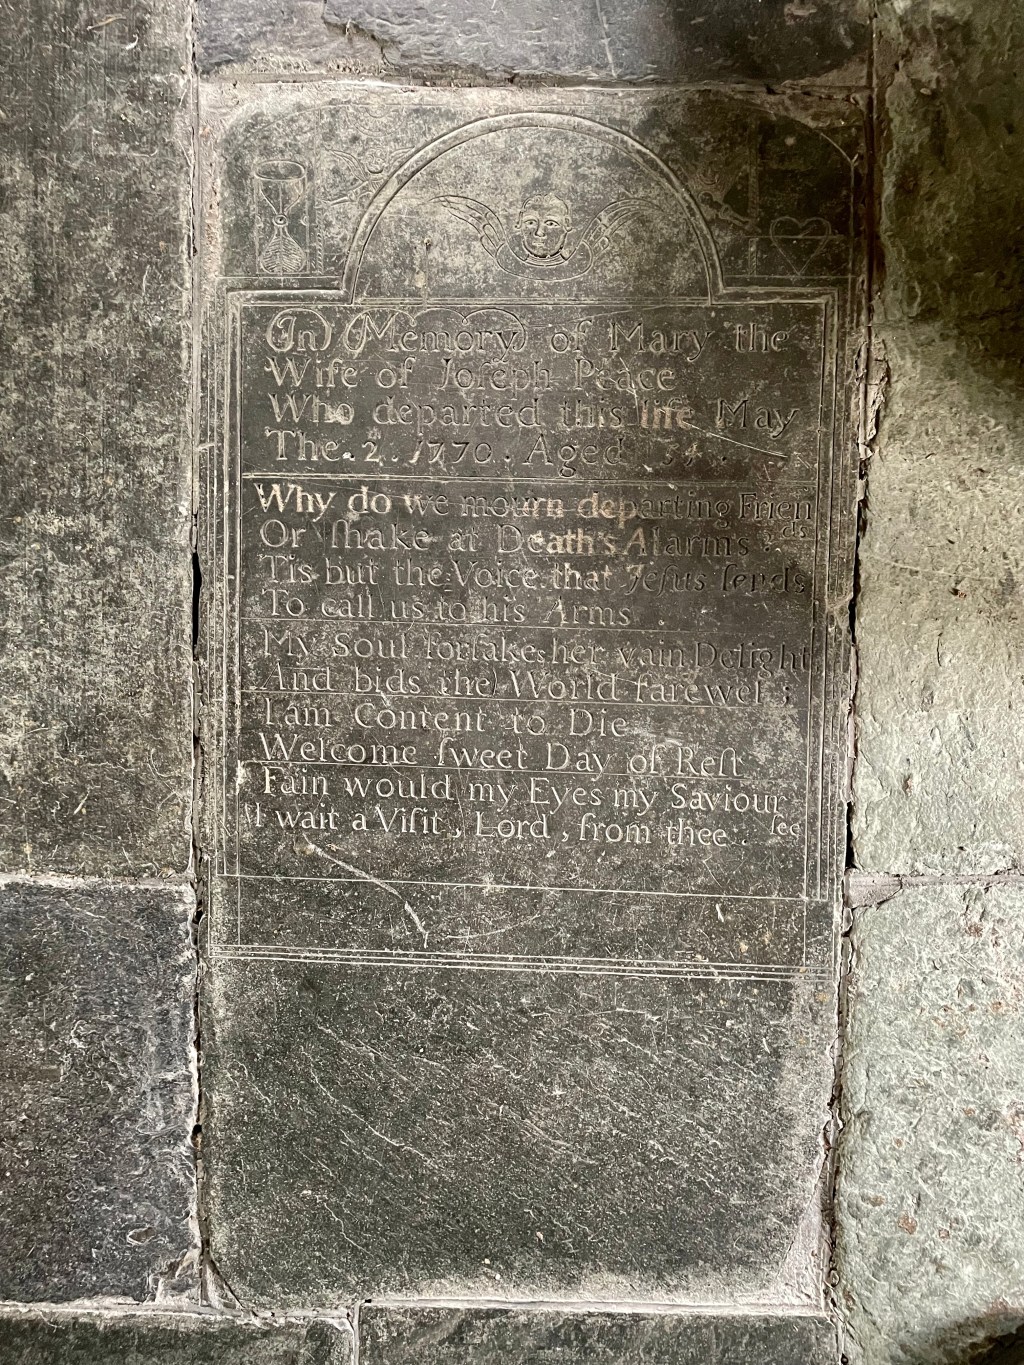 In Memory of Mary the
Wife of Joſeph Peace
Who departed this life May
The. 2. 1770. Aged 54.
Why do we mourn departing Frien
ds
Or ſhake at Death's Alarms
Tis but the Voice that Jeſus ſends
To call us to his Arms
My Soul forſakes her vain Delight
And bids the World farewel;
I am Content to Die
Welcome ſweet Day of Reſt
Fain would my Eyes my Saviour
ſee
I wait a Viſit, Lord, from thee.